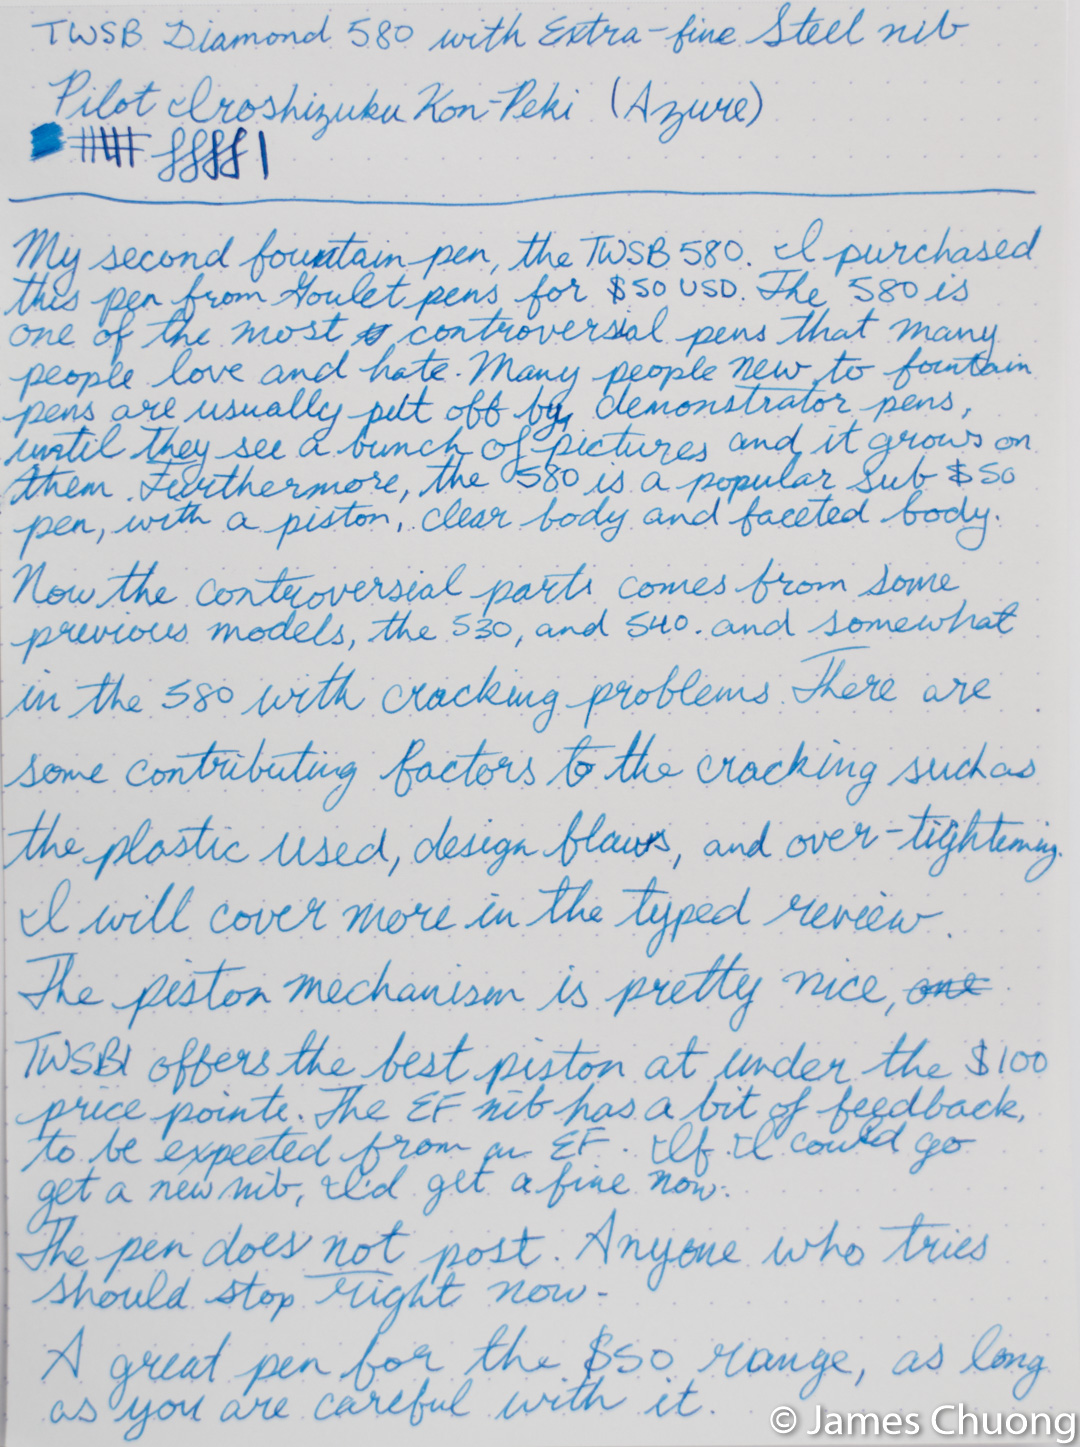 TWSB Diamond 580 with Extra-fine Steel nib
Pilot Iroshizuku Kon-Peki (Azure)
My second fountain pen, the TWSB 580. I purchased
this pen from Goulet pens for $50 USD. The 580 is
one of the most controversial pens that many
people love and hate. Many people new to fountain
pens are usually put off by demonstrator pens,
until they see a bunch of pictures and it grows on
them. Furthermore, the 580 is a popular sub $50
pen, with a piston, clear body and faceted body.
Now the controversial parts comes from some
previous models, the 530, and 540. and somewhat
in the 580 with cracking problems. There are
some contributing factors to the cracking such as
the plastic used, design flaws, and over-tightening.
I will cover more in the typed review.
The piston mechanism is pretty nice, one
TWSBI offers the best piston at under the $100
price pointe. The EF nib has a bit of feedback,
to be expected from an EF. If I could go
get a new nib, I'd get a fine now.
The pen does not post. Anyone who tries
should stop right now.
A great pen for the $50 range, as long
as you are careful with it.
© James Chuong